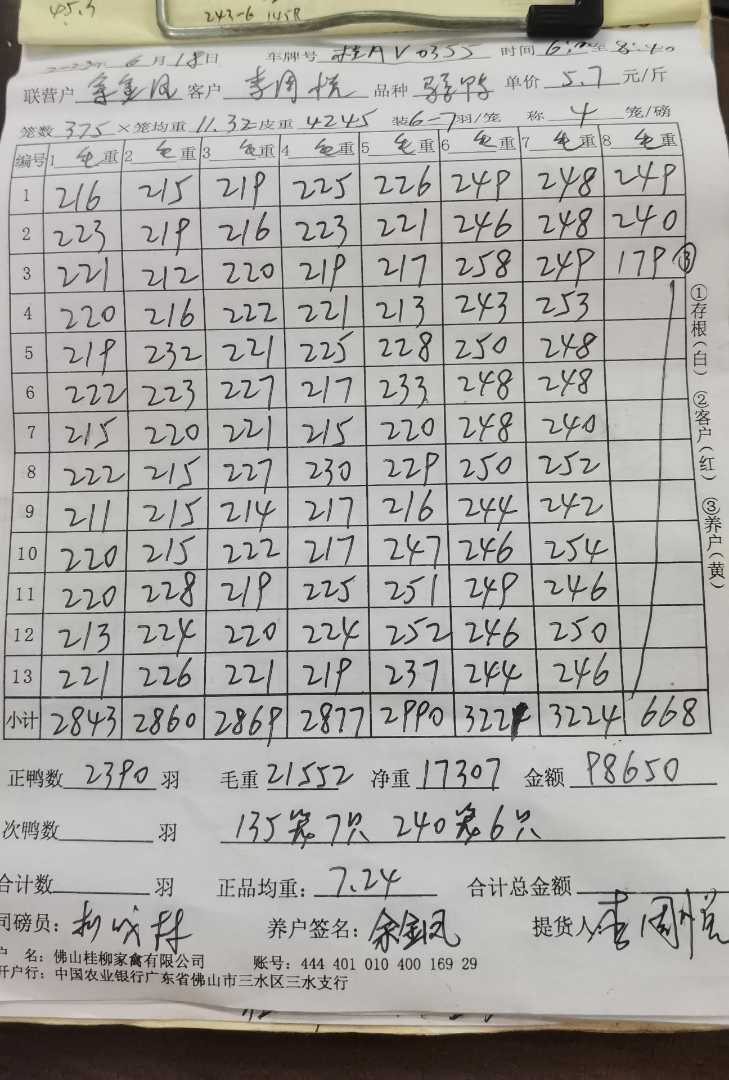 45.3
243-6 145只
2023年 6月18日 车牌号 桂AV0355 时间 6: 至8:40
联营户 余金凤 客户 李周悦 品种 单价 5.7 元/斤
笼数 375 ×笼均重 11.32 皮重 4245 装6-7羽/笼 称 4 笼/磅
编号 1 毛重 2 毛重 3 毛重 4 毛重 5 毛重 6 毛重 7 毛重 8 毛重
1 216 215 219 225 226 249 248 249
2 223 219 216 223 221 246 248 240
3 221 212 220 219 217 258 249 179 ③
4 220 216 222 221 213 243 253
5 219 232 221 225 228 250 248
6 222 223 227 217 233 248 248
7 215 220 221 215 220 248 240
8 222 215 227 230 229 250 252
9 211 215 214 217 216 244 242
10 220 215 222 217 247 246 254
11 220 228 219 225 251 249 246
12 213 224 220 224 252 246 250
13 221 226 221 219 237 244 246
小计 2843 2860 2869 2877 2990 3221 3224 668
正鸭数 2390 羽 毛重 21552 净重 17307 金额 98650
次鸭数 羽 135笼7只 240笼6只
合计数 羽 正品均重: 7.24 合计总金额
司磅员: 养户签名: 余金凤 提货人: 李周悦
户 名: 佛山桂柳家禽有限公司 账号: 444 401 010 400 169 29
开户行: 中国农业银行广东省佛山市三水区三水支行
①存根(白) ②客户(红) ③养户(黄)